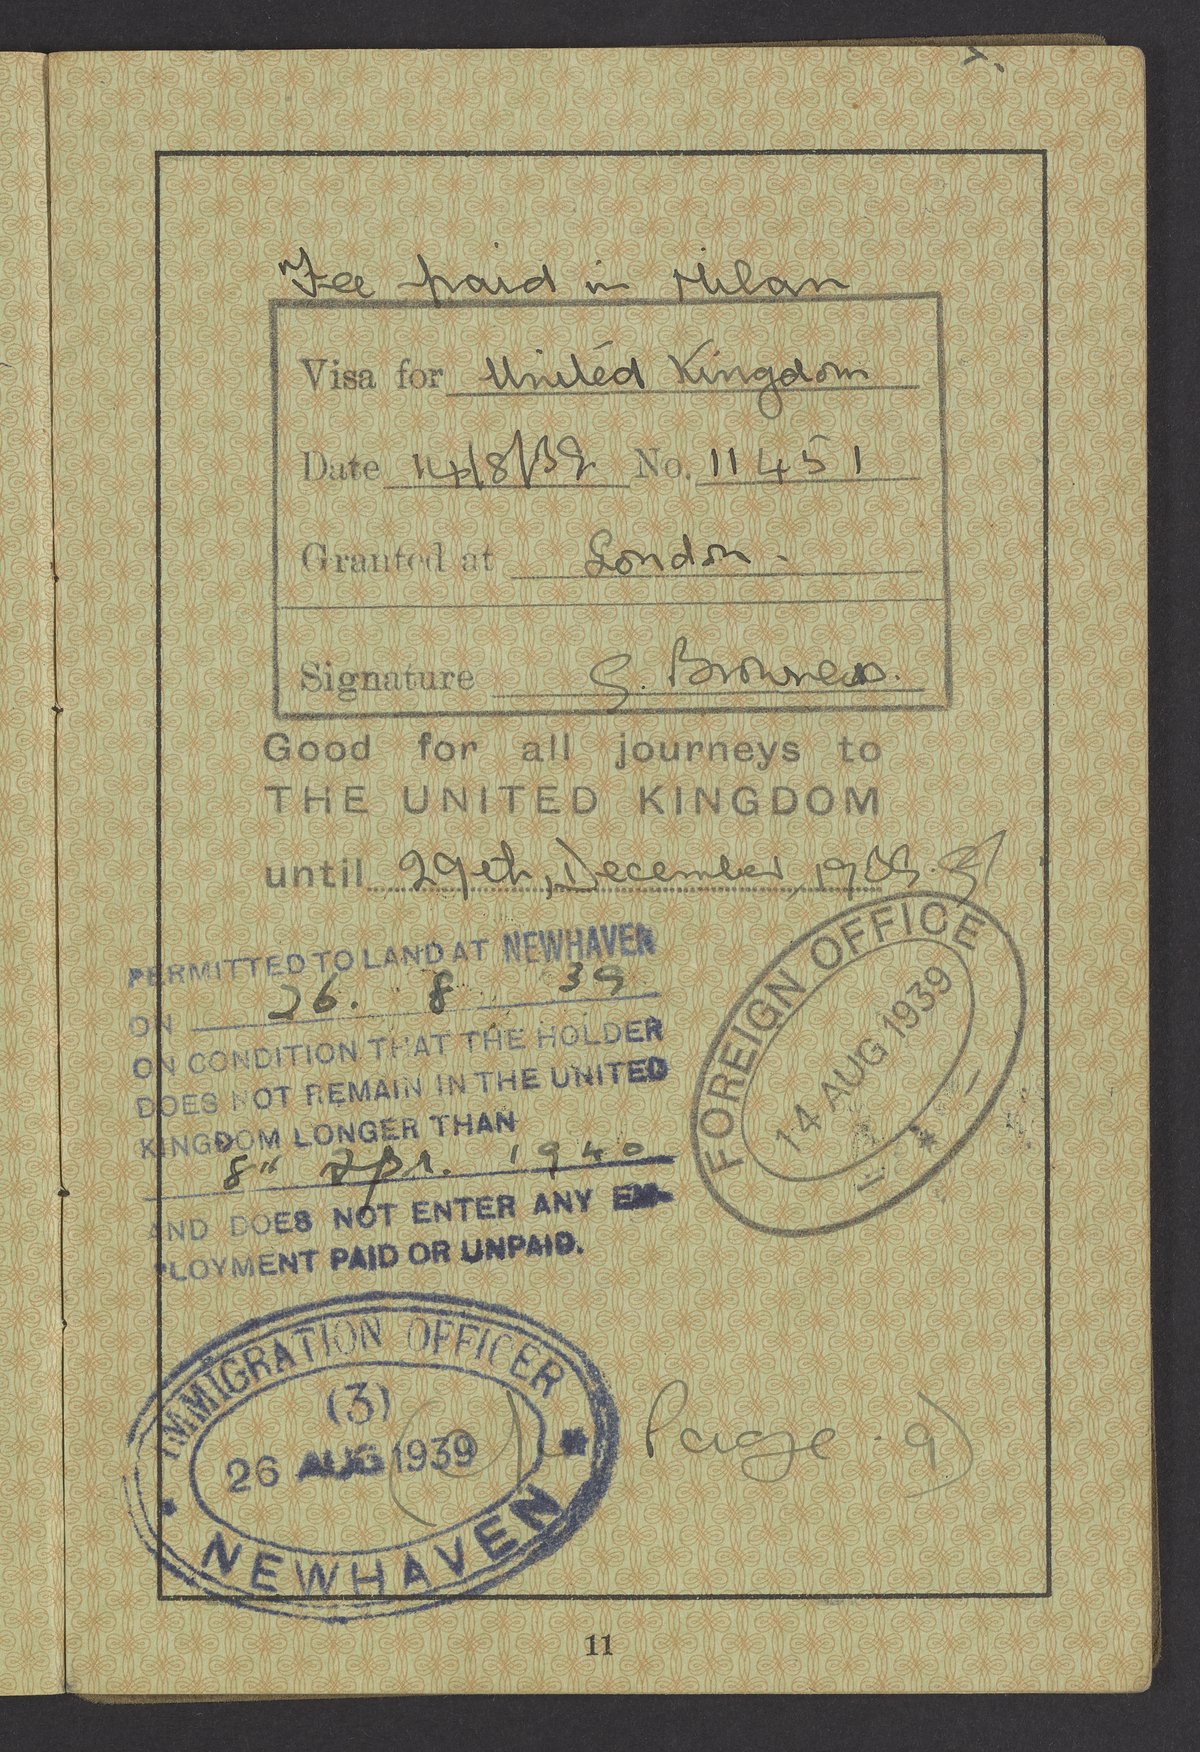 Fee paid in Milan
Visa for United Kingdom
Date 14/8/39 No. 11451
Granted at London.
Signature G.
Good for all journeys to
THE UNITED KINGDOM
until 29th, December, 1939.
FOREIGN OFFICE
14 AUG 1939
PERMITTED TO LAND AT NEWHAVEN
ON 26. 8 39
ON CONDITION THAT THE HOLDER
DOES NOT REMAIN IN THE UNITED
KINGDOM LONGER THAN
8th Apr. 1940
AND DOES NOT ENTER ANY EM-
PLOYMENT PAID OR UNPAID.
IMMIGRATION OFFICER
(3)
26 AUG 1939
NEWHAVEN
Page 9)
11